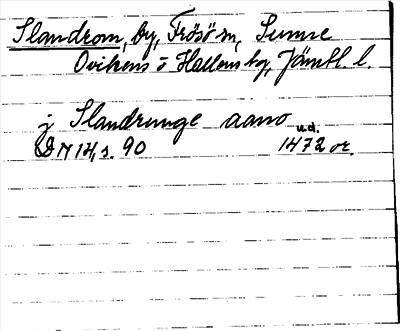 Slandrom, by, Frösö sn, Sunne
Ovikens o Hallens tg, Jämtl. l.
j Slandrunge aano
DN 14, s. 90 1472 u.d. or.